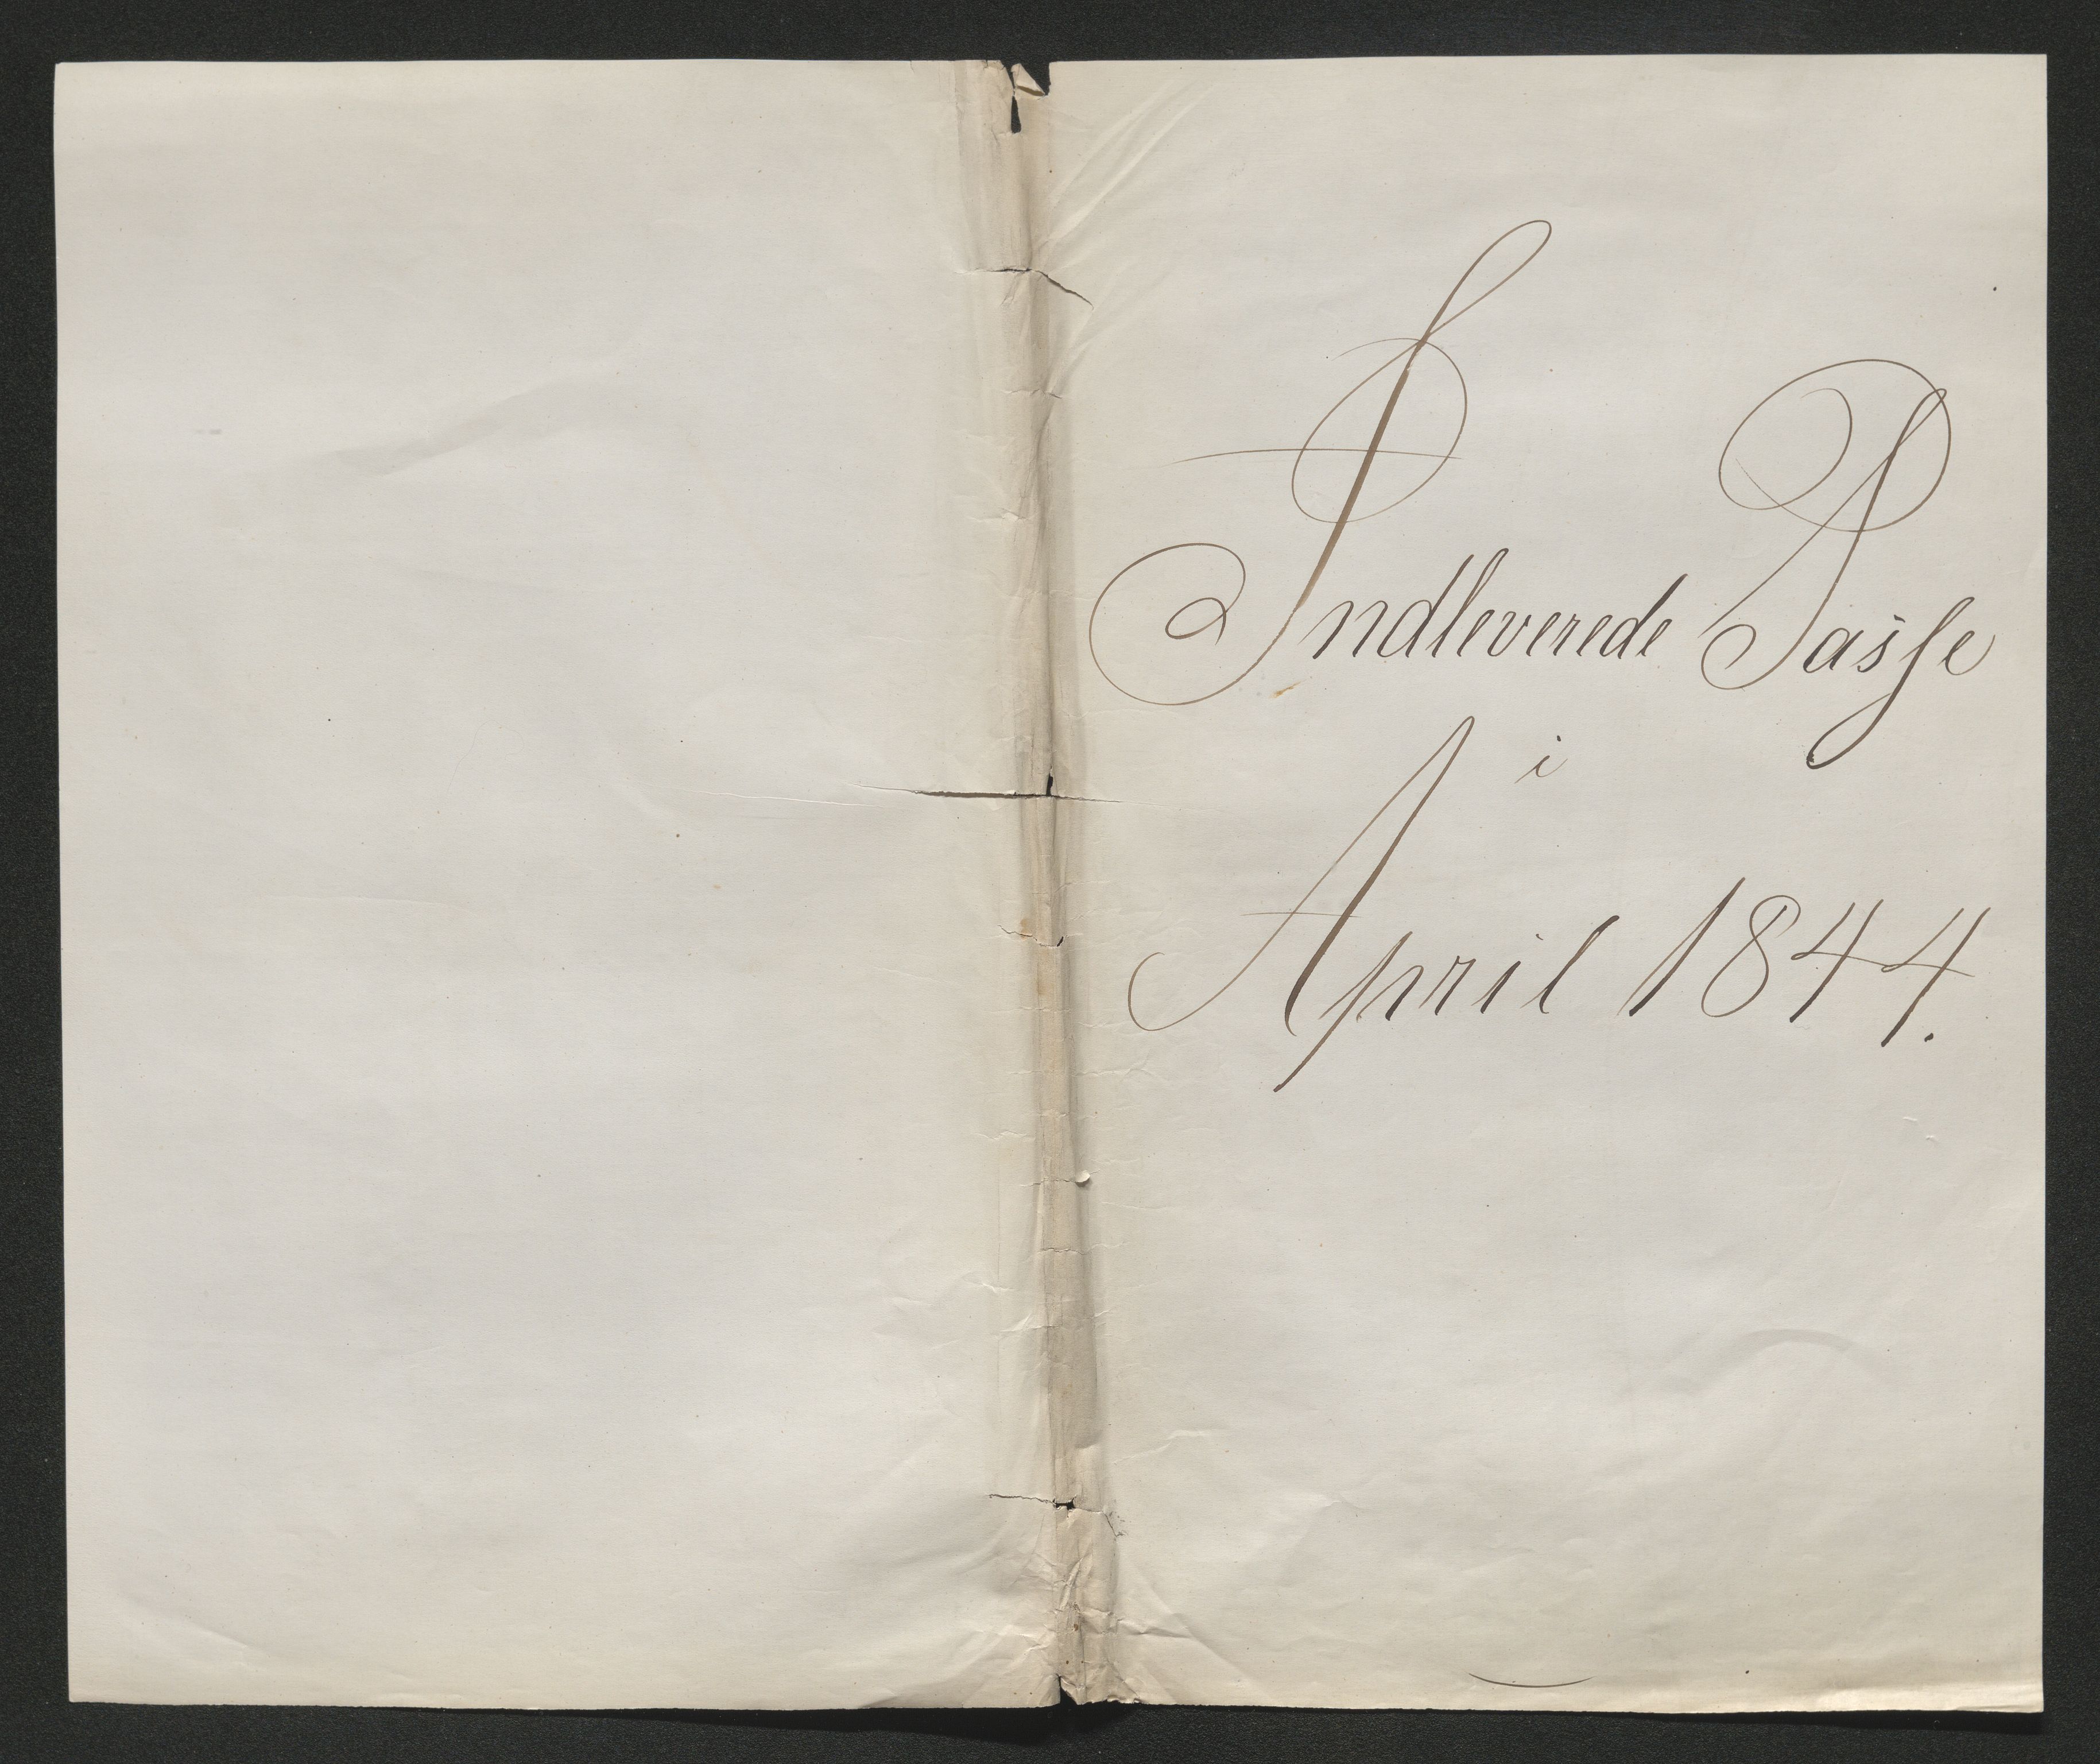 Indleverede Passe
i
April 1844.